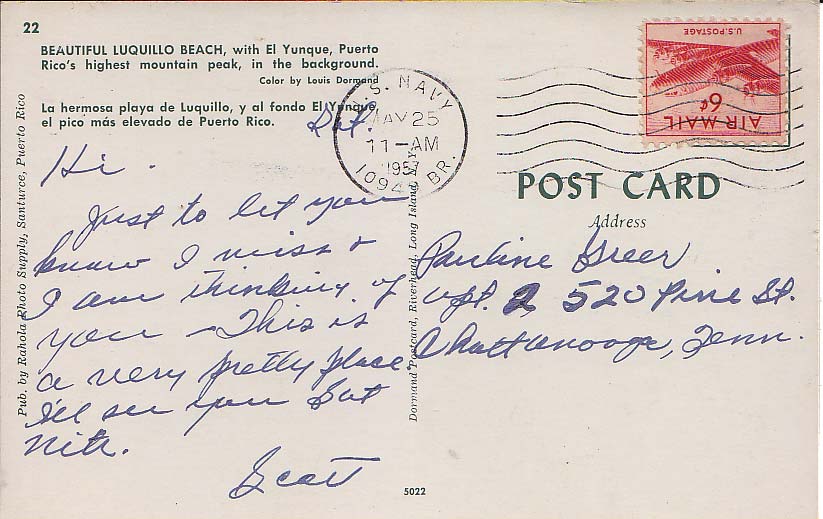 22
BEAUTIFUL LUQUILLO BEACH, with El Yunque, Puerto
Rico's highest mountain peak, in the background.
Color by Louis Dormand
La hermosa playa de Luquillo, y al fondo El Yunque,
el pico más elevado de Puerto Rico.
Sat.
Hi.
Just to let you
know I miss &
I am thinking of
you – This is
a very pretty place
I'll see you Sat
nite.
Scott
Pub. by Rahola Photo Supply, Santurce, Puerto Rico
Dormand Postcard, Riverhead, Long Island, N.Y.
5022
U.S. NAVY
MAY 25
11-AM
1957
BR.
U.S. POSTAGE
6¢
AIR MAIL
POST CARD
Address
Pauline Greer
Apt. 2 520 Pine St.
Chattanooga, Tenn.